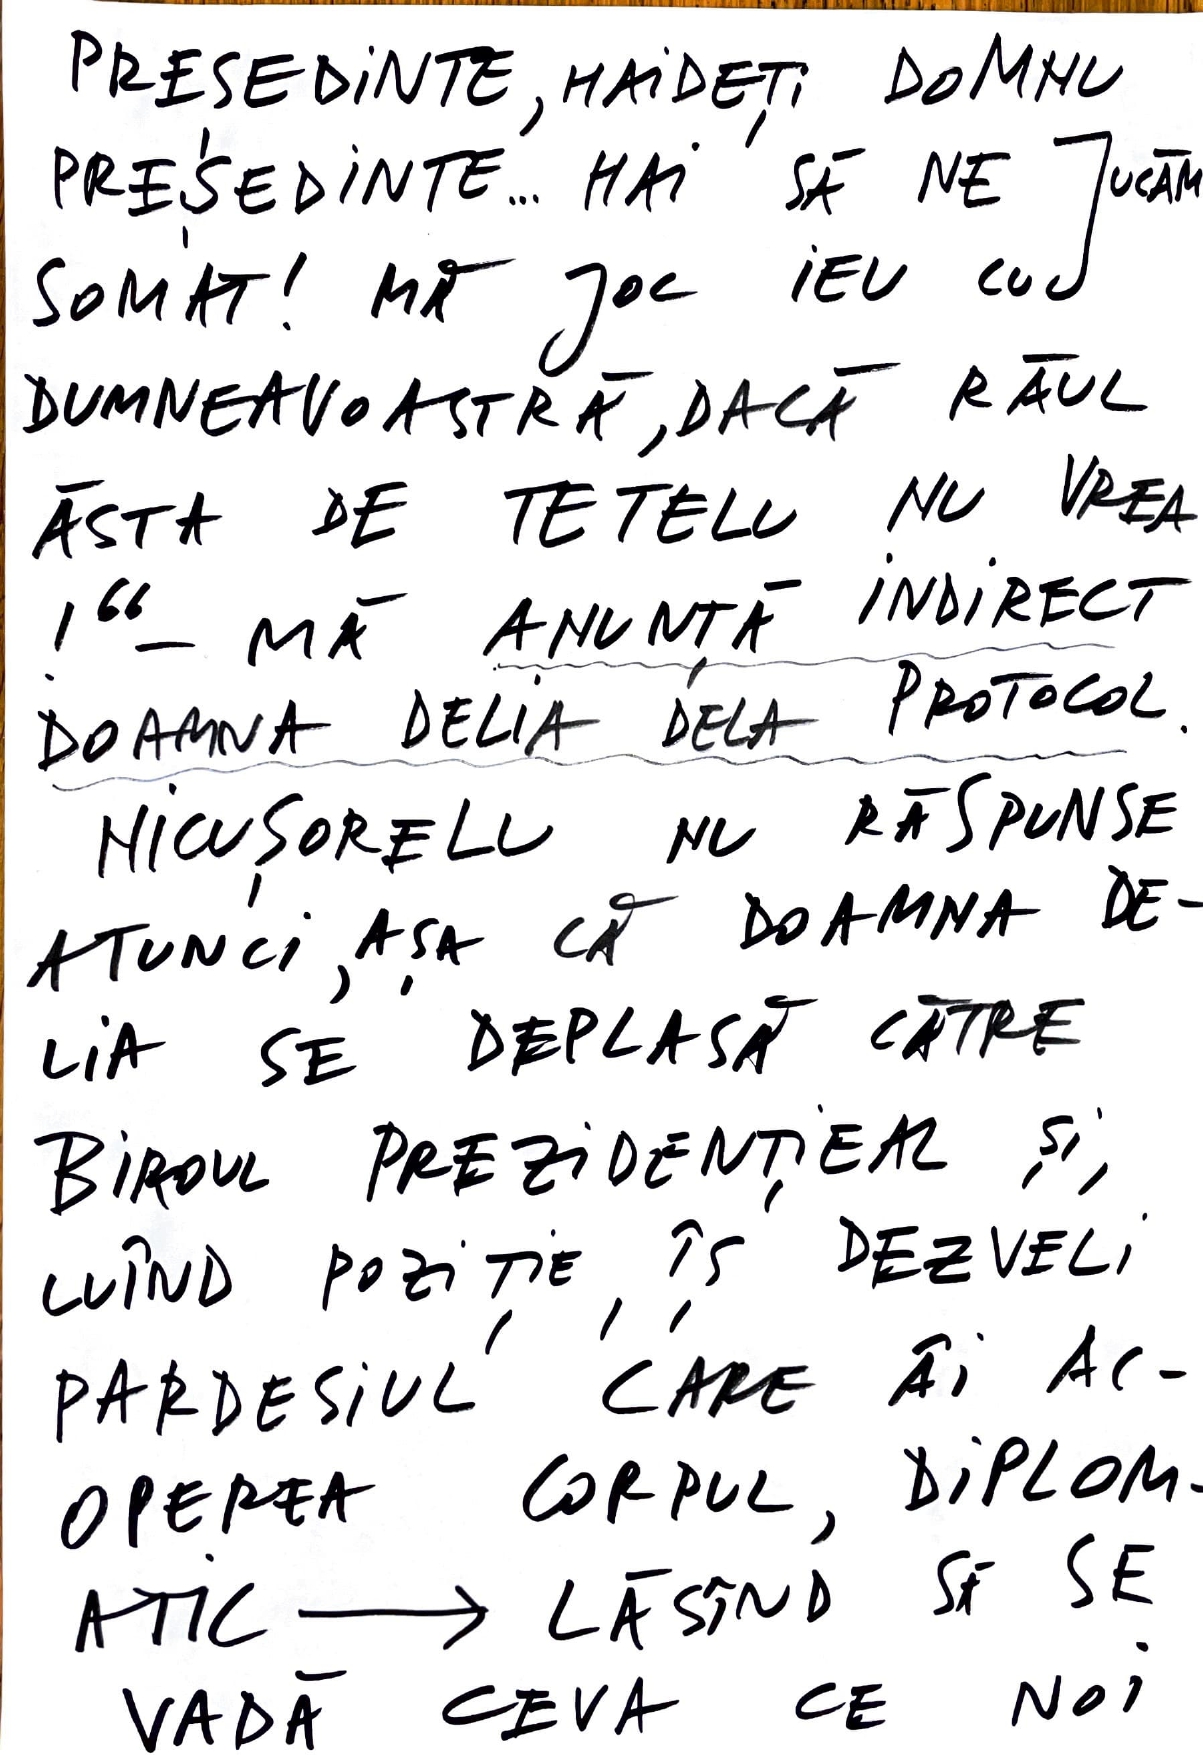 PREȘEDINTE, HAIDEȚI DOMNU
PREȘEDINTE... HAI SĂ NE JUCĂM
ȘOMAT! MĂ JOC IEU CU
DUMNEAVOASTRĂ, DACĂ RĂUL
ĂSTA DE TETELU NU VREA
!“ – MĂ ANUNȚĂ INDIRECT
DOAMNA DELIA DELA PROTOCOL.
NICUȘORELU NU RĂSPUNSE
ATUNCI, AȘA CĂ DOAMNA DE-
LIA SE DEPLASĂ CĂTRE
BIROUL PREZIDENȚIEAL ȘI,
LUÎND POZIȚIE, ÎȘ DEZVELI
PARDESIUL CARE ÂI AC-
OPEREA CORPUL, DIPLOM-
ATIC → LĂSÎND SĂ SE
VADĂ CEVA CE NOI